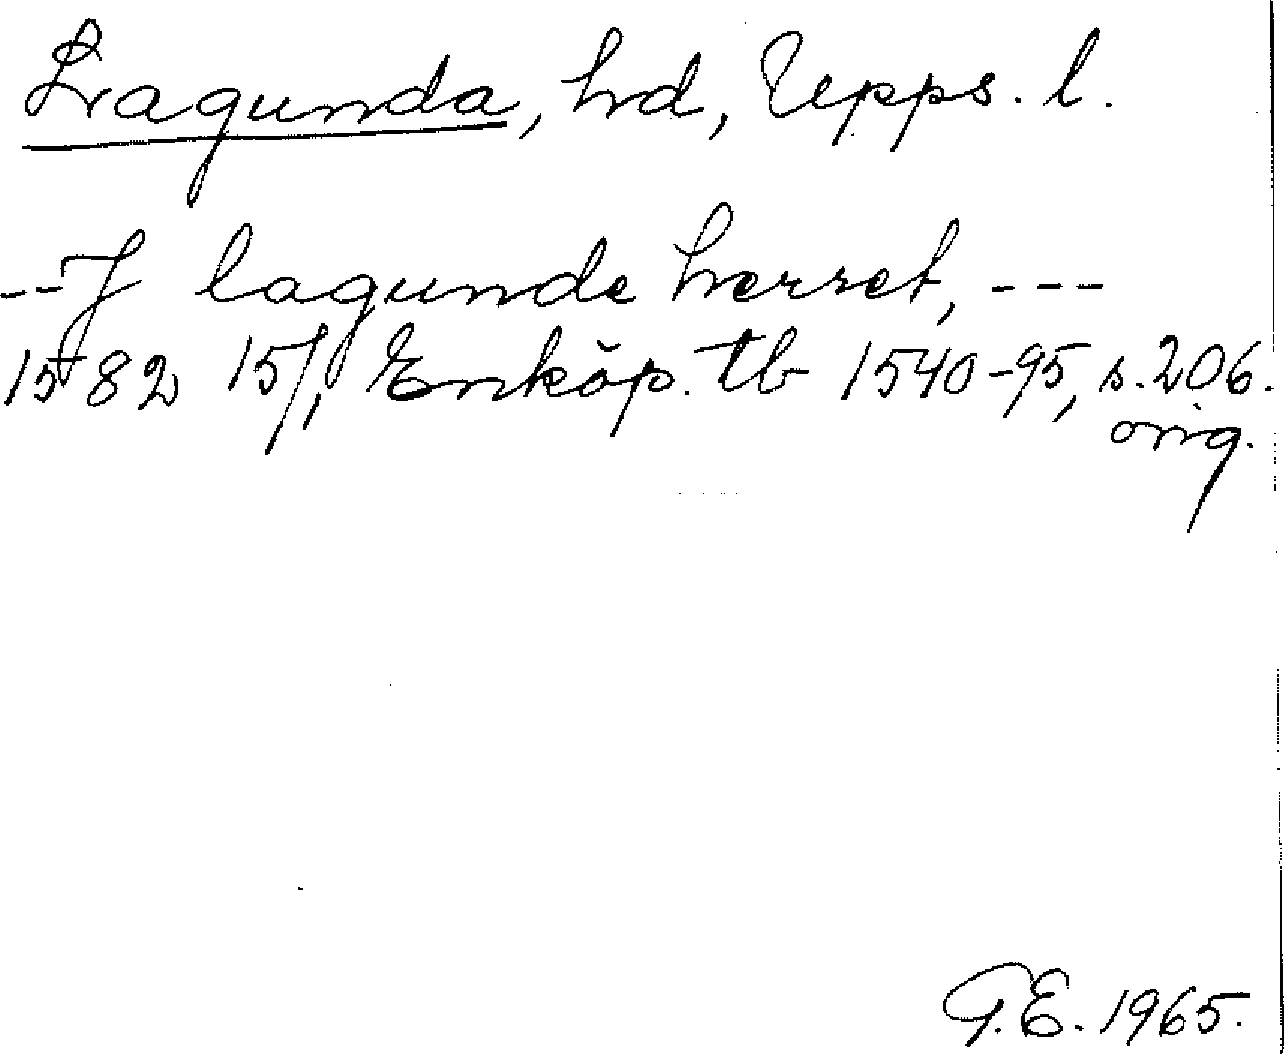 Lagunda, hd, Upps. l.
--J lagunde herret, ---
1582 15/, Enköp. tb 1540-95, s. 206.
orig.
G.E. 1965.